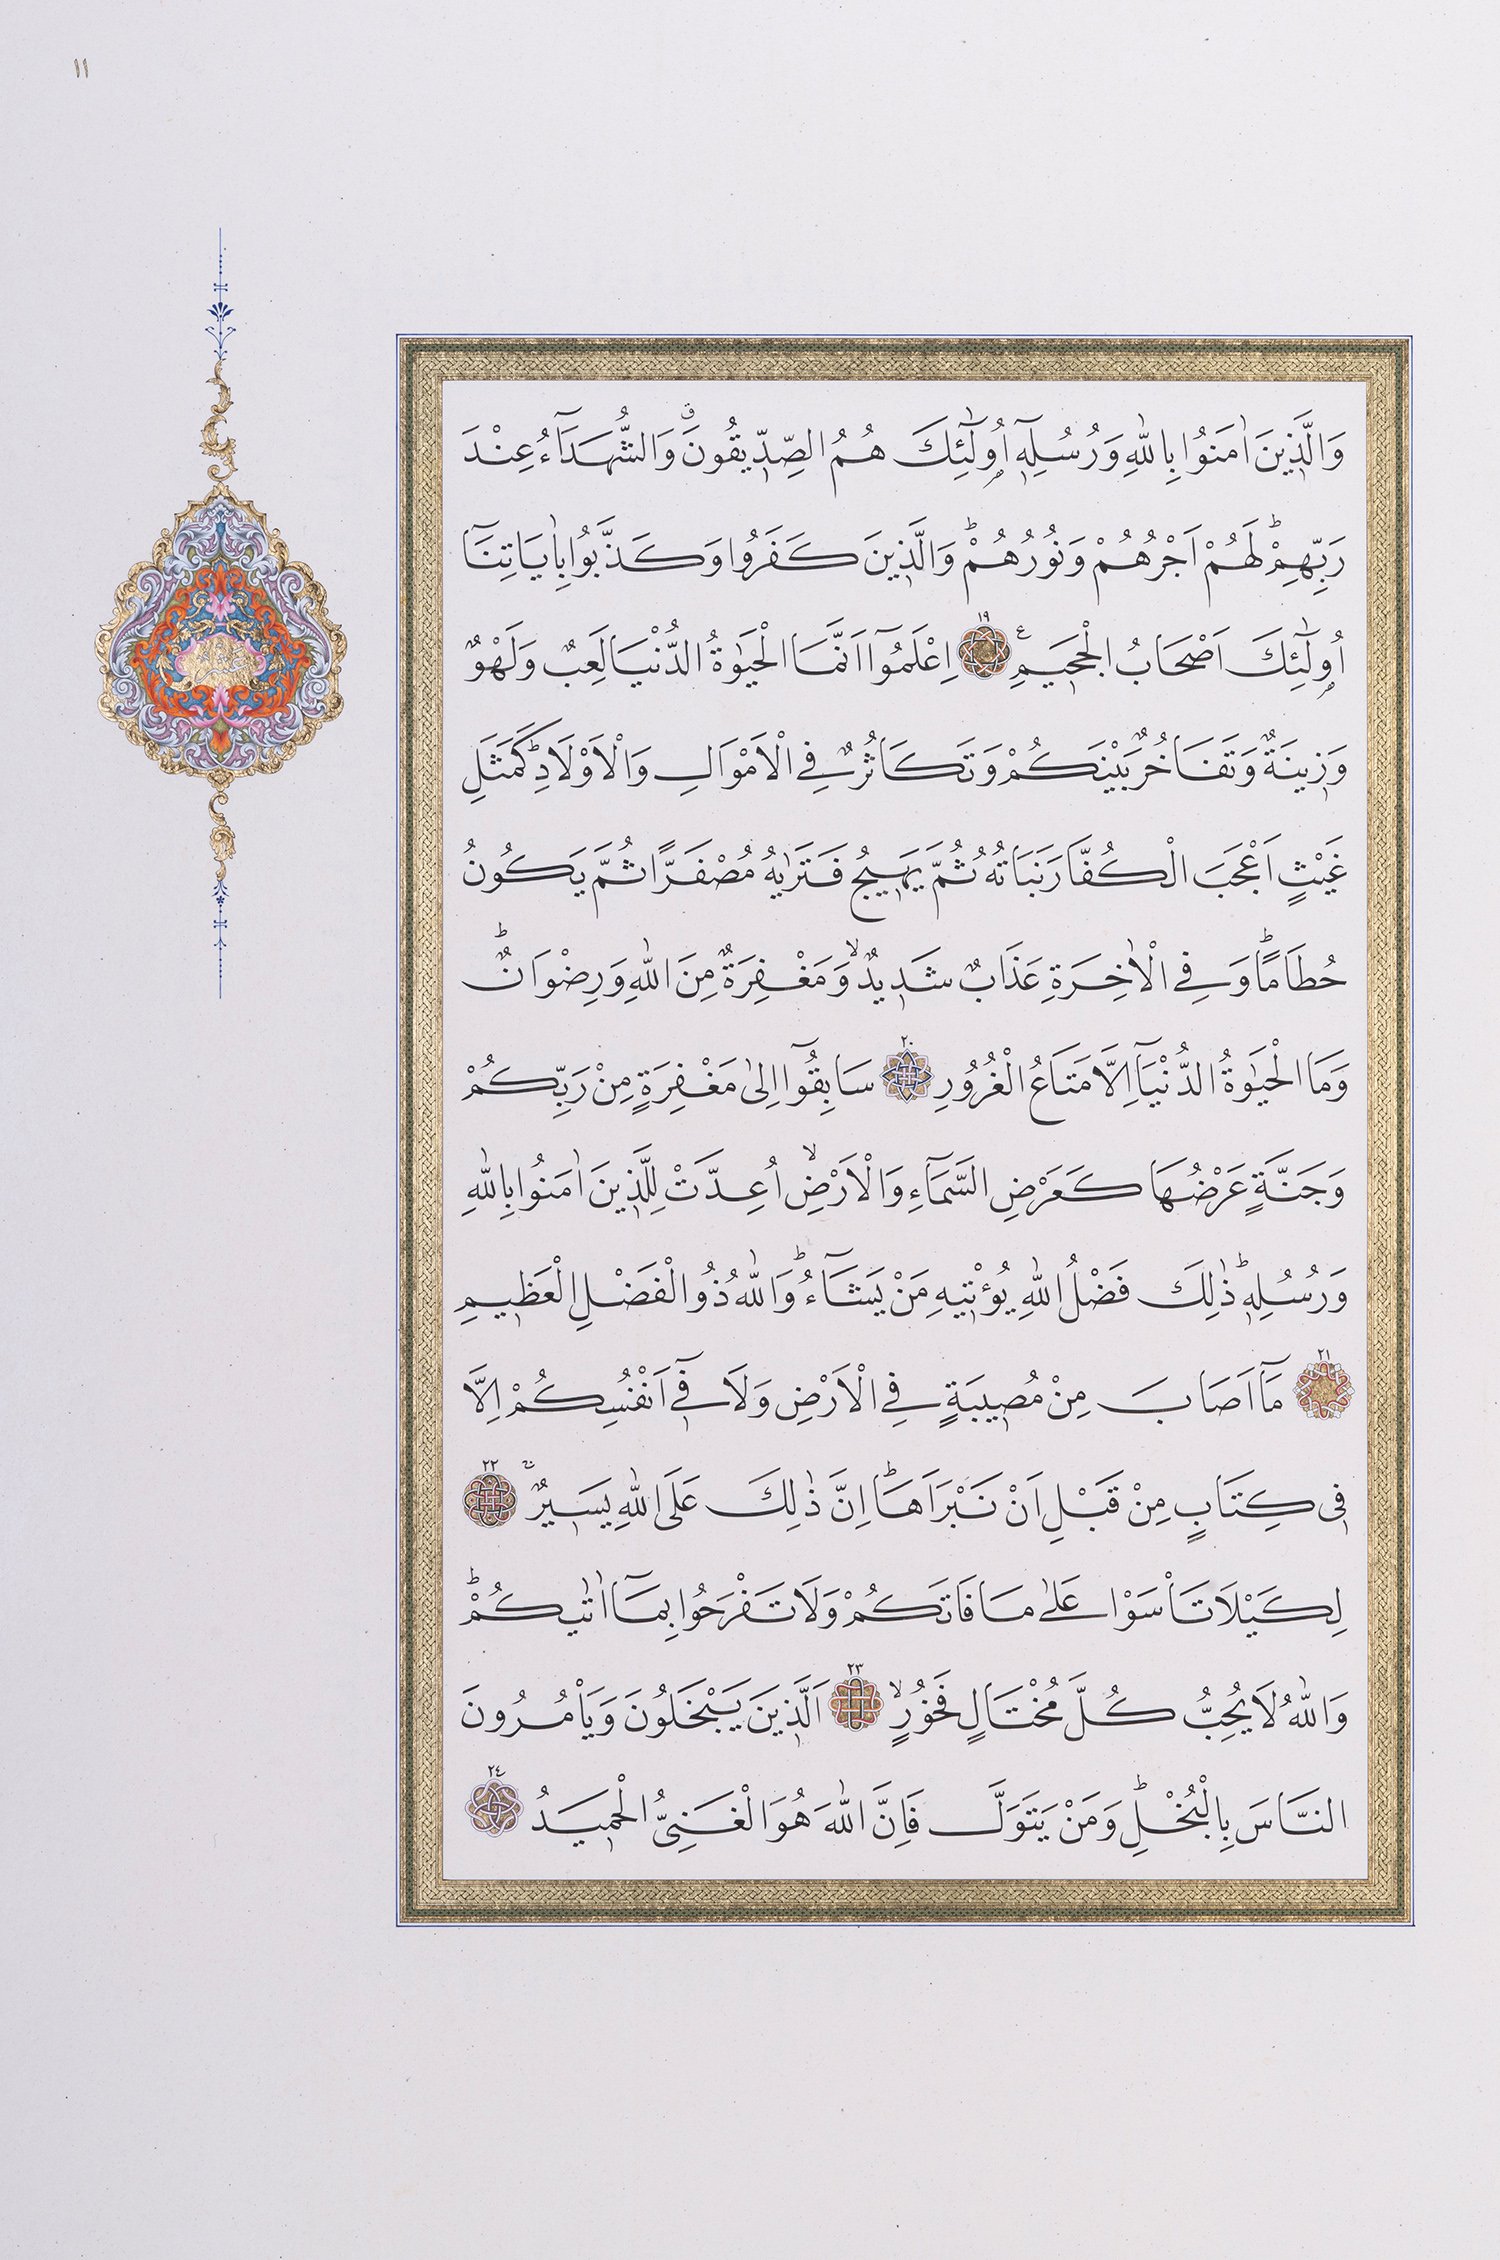 ١١
وَالَّذِينَ اٰمَنُوا بِاللّٰهِ وَرُسُلِهٖٓ اُو۬لٰٓئِكَ هُمُ الصِّدّٖيقُونَۗ وَالشُّهَدَٓاءُ عِنْدَ
رَبِّهِمْۜ لَهُمْ اَجْرُهُمْ وَنُورُهُمْۜ وَالَّذٖينَ كَفَرُوا وَكَذَّبُوا بِاٰيَاتِنَٓا
اُو۬لٰٓئِكَ اَصْحَابُ الْجَحٖيمِ ١٩ اِعْلَمُٓوا اَنَّمَا الْحَيٰوةُ الدُّنْيَا لَعِبٌ وَلَهْوٌ
وَزٖينَةٌ وَتَفَاخُرٌ بَيْنَكُمْ وَتَكَاثُرٌ فِي الْاَمْوَالِ وَالْاَوْلَادِۜ كَمَثَلِ
غَيْثٍ اَعْجَبَ الْكُفَّارَ نَبَاتُهُ ثُمَّ يَهٖيجُ فَتَرٰيهُ مُصْفَرًّا ثُمَّ يَكُونُ
حُطَامًاۜ وَفِي الْاٰخِرَةِ عَذَابٌ شَدٖيدٌۙ وَمَغْفِرَةٌ مِنَ اللّٰهِ وَرِضْوَانٌۜ
وَمَا الْحَيٰوةُ الدُّنْيَٓا اِلَّا مَتَاعُ الْغُرُورِ ٢٠ سَابِقُٓوا اِلٰى مَغْفِرَةٍ مِنْ رَبِّكُمْ
وَجَنَّةٍ عَرْضُهَا كَعَرْضِ السَّمَٓاءِ وَالْاَرْضِۙ اُعِدَّتْ لِلَّذٖينَ اٰمَنُوا بِاللّٰهِ
وَرُسُلِهٖۜ ذٰلِكَ فَضْلُ اللّٰهِ يُؤْتٖيهِ مَنْ يَشَٓاءُۜ وَاللّٰهُ ذُو الْفَضْلِ الْعَظٖيمِ
٢١ مَٓا اَصَابَ مِنْ مُصٖيبَةٍ فِي الْاَرْضِ وَلَا فٖٓي اَنْفُسِكُمْ اِلَّا
فٖي كِتَابٍ مِنْ قَبْلِ اَنْ نَبْرَاَهَاۜ اِنَّ ذٰلِكَ عَلَى اللّٰهِ يَسٖيرٌۚ ٢٢
لِكَيْلَا تَأْسَوْا عَلٰى مَا فَاتَكُمْ وَلَا تَفْرَحُوا بِمَٓا اٰتٰيكُمْۜ
وَاللّٰهُ لَا يُحِبُّ كُلَّ مُخْتَالٍ فَخُورٍۙ ٢٣ اَلَّذٖينَ يَبْخَلُونَ وَيَأْمُرُونَ
النَّاسَ بِالْبُخْلِۜ وَمَنْ يَتَوَلَّ فَاِنَّ اللّٰهَ هُوَ الْغَنِيُّ الْحَمٖيدُ ٢٤